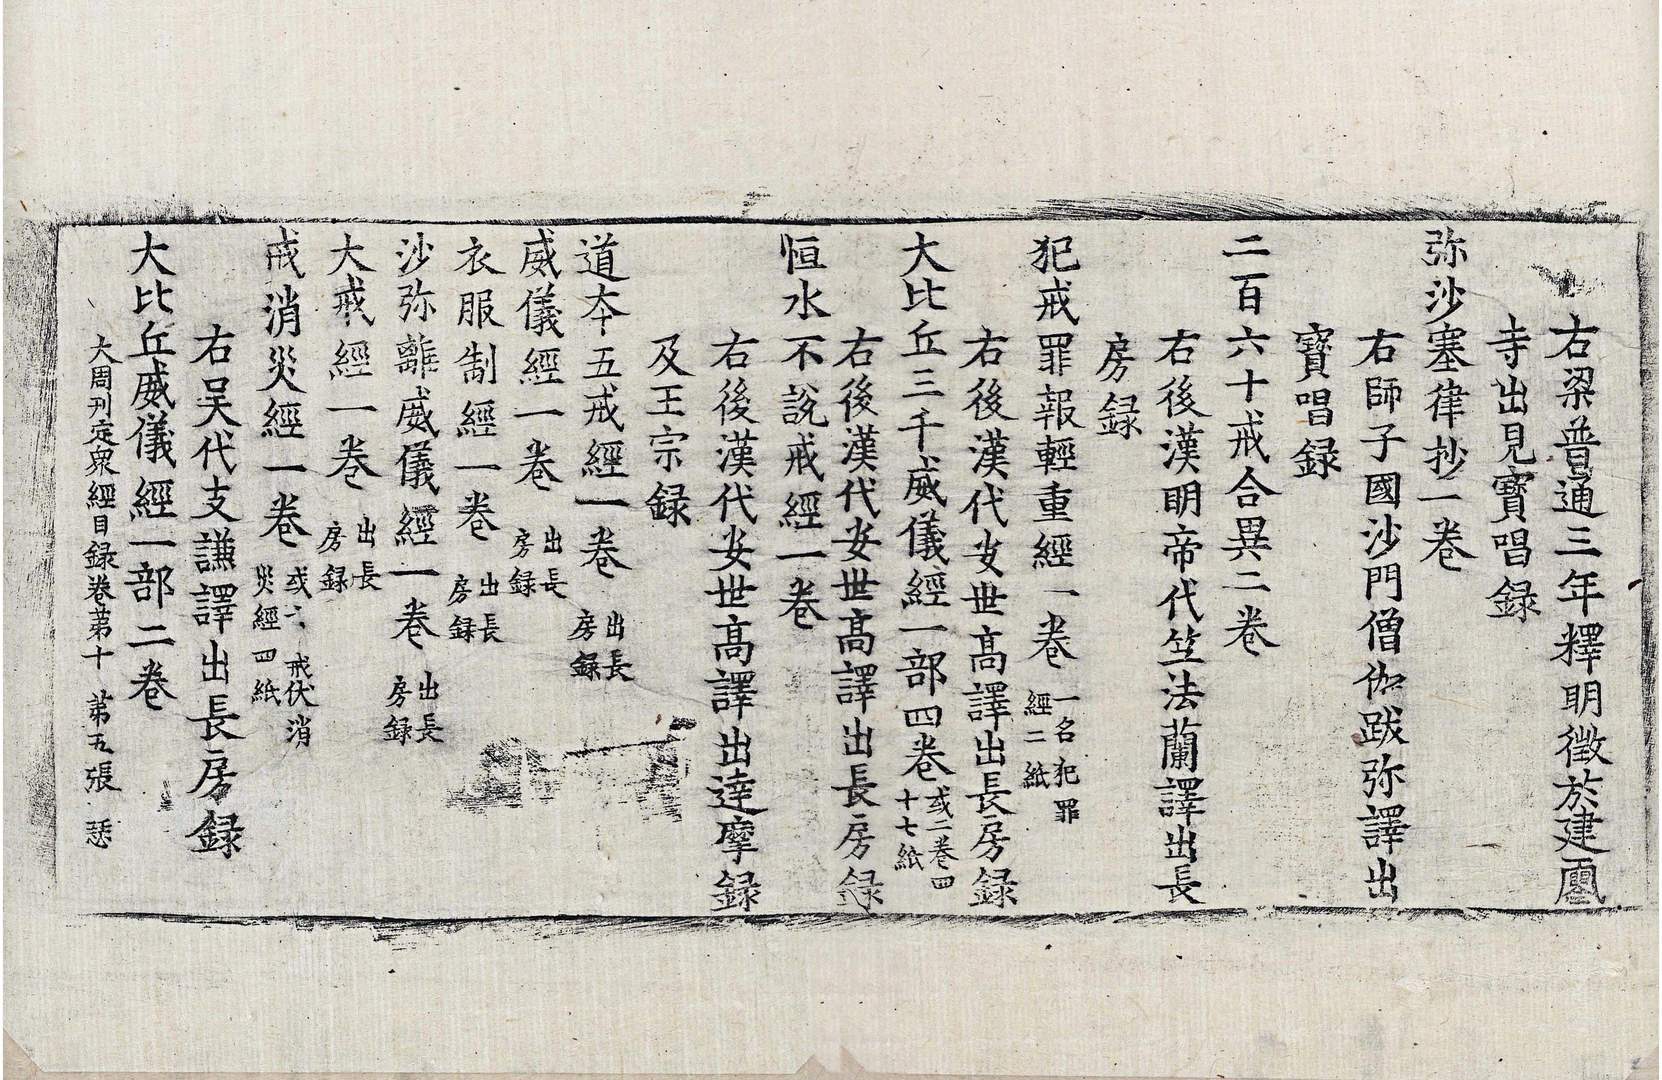 右梁普通三年釋明徵於建
寺出見寳唱録
弥沙塞律抄一卷
右師子國沙門僧伽跋弥譯出
寳唱録
二百六十戒合異二卷
右後漢明帝代竺法蘭譯出長
房録
犯戒罪報輕重經一卷 一名犯罪
經二紙
右後漢代安世髙譯出長房録
大比丘三千威儀經一部四卷 或二卷四
十七紙
右後漢代安世髙譯出長房録
恒水不說戒經一卷
右後漢代安世髙譯出達摩録
及王宗録
道夲五戒經一卷 出長
房録
威儀經一卷 出長
房録
衣服制經一卷 出長
房録
沙弥離威儀經一卷 出長
房録
大戒經一卷 出長
房録
戒消災經一卷 或云戒伏消
災經四紙
右吴代支謙譯出長房録
大比丘威儀經一部二卷
大周刋定衆經目録卷苐十 苐五張